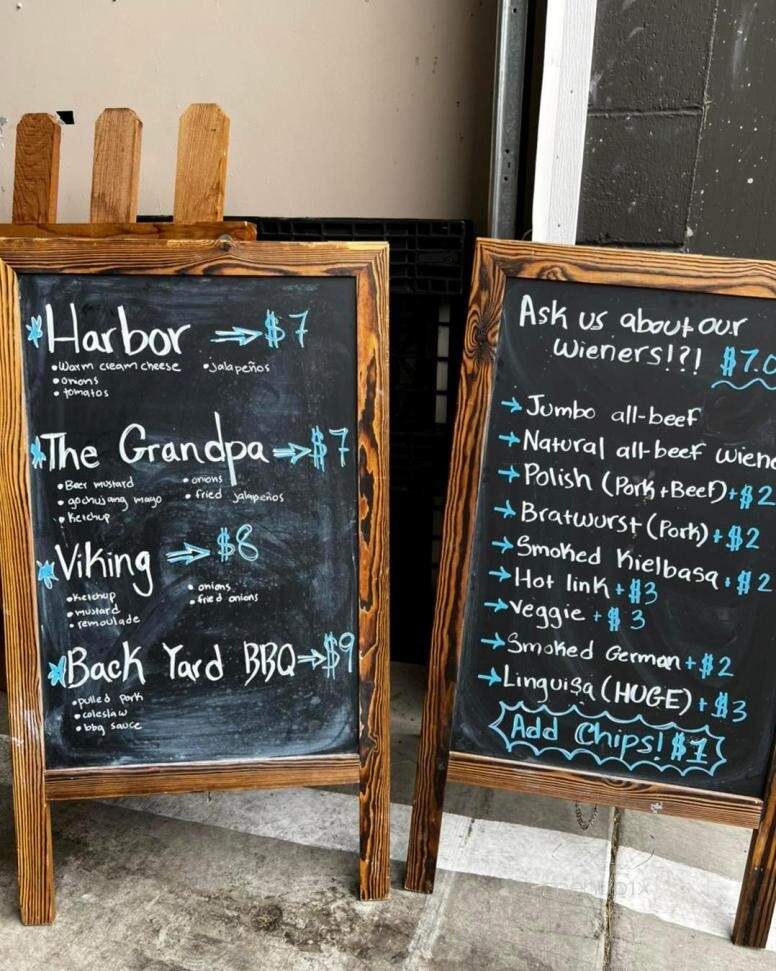 Harbor → $7
• Warm cream cheese • jalapeños
• onions
• tomatos
The Grandpa → $7
• Beer mustard • onions
• gochujang mayo • fried jalapeños
• Ketchup
Viking → $8
• Ketchup • onions
• mustard • fried onions
• remoulade
Back Yard BBQ → $9
• pulled pork
• coleslaw
• bbq sauce
Ask us about our
wieners!?! $7.0
→ Jumbo all-beef
→ Natural all-beef wiene
→ Polish (Pork + Beef) + $2
→ Bratwurst (Pork) + $2
→ Smoked Kielbasa + $2
→ Hot link + $3
→ Veggie + $3
→ Smoked German + $2
→ Linguisa (HUGE) + $3
Add Chips! $1